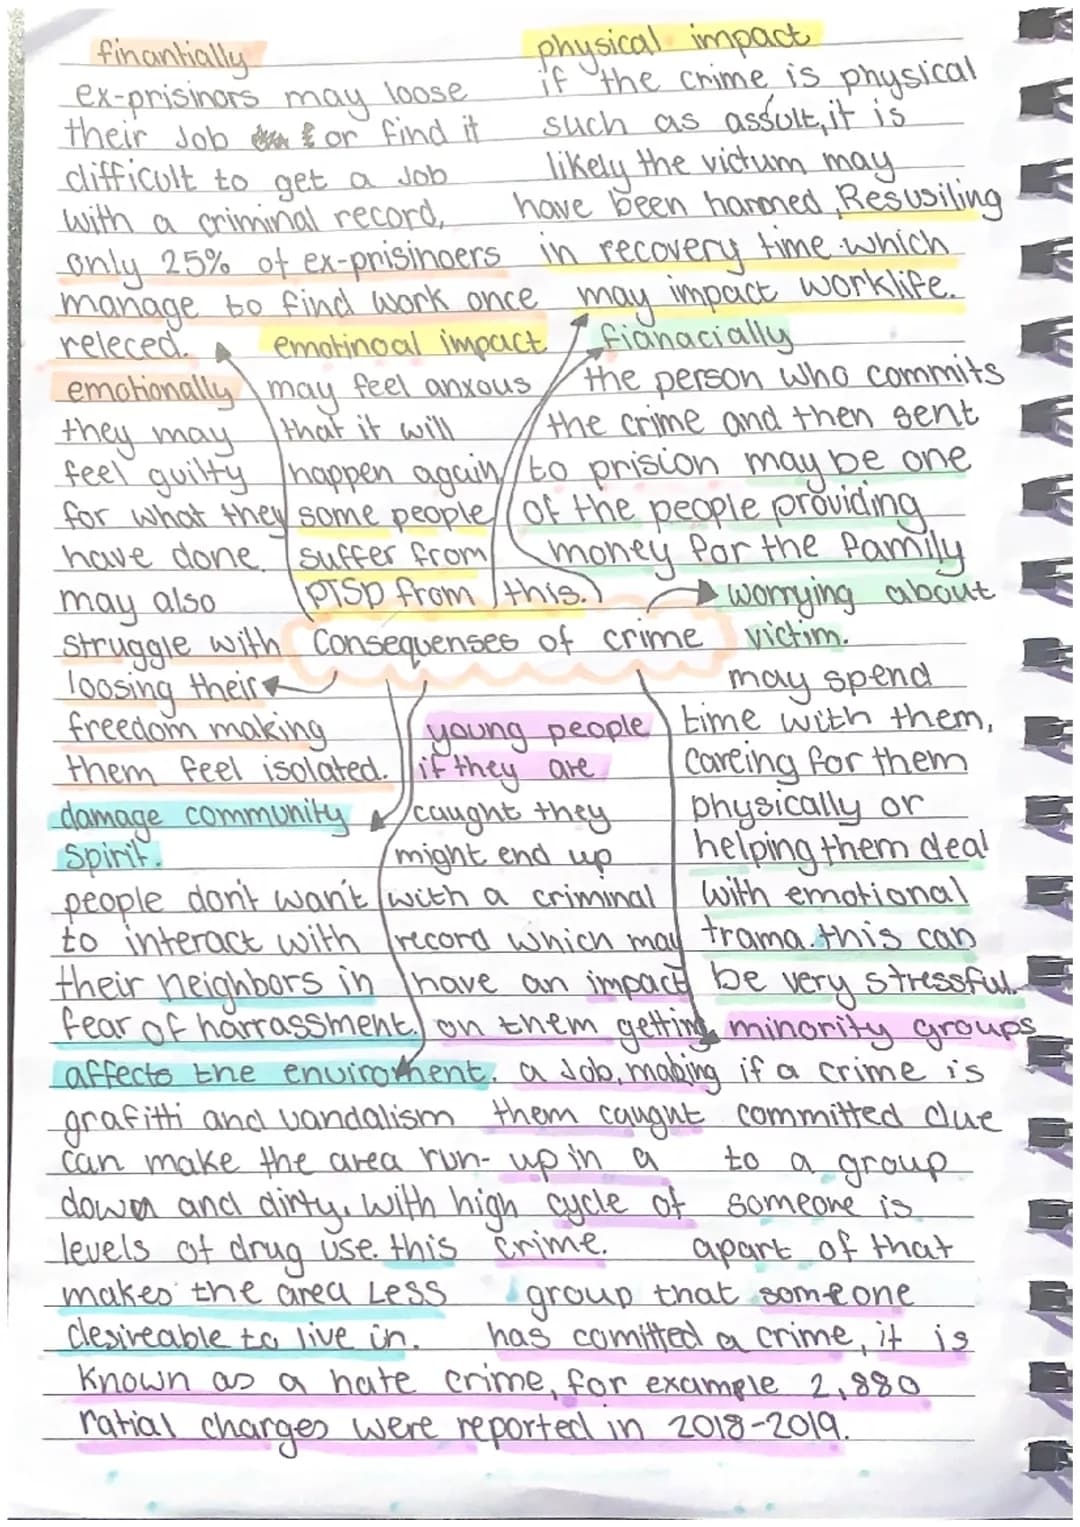 finantially
ex-prisinors may loose
their Job or find it
difficult to get a Job
with a criminal record,
only 25% of ex-prisinoers
manage to find work once
releced.
physical impact
if the crime is physical
such as assult, it is
likely the victum may
have been harmed, Resusiling
in recovery time which
may impact worklife.
emotinoal impact
may feel anxous
that it will
happen again,
some people
suffer from
PTSD from this.
fianacially
the person who commits
the crime and then sent
to prision may be one
of the people providing
money for the family
emotionally
they may
feel guilty
for what they
have done.
may also
struggle with
loosing their
freedom making
them feel isolated.
Consequenses of crime
worrying about
victim.
may spend
time with them,
careing for them
physically or
helping them deal
with emotional
trama. this can
be very stressful.
damage community
spirit.
people don't want
to interact with
their neighbors in
fear of harrassment.
young people
if they are
caught they
might end up
with a criminal
record which may
have an impact
on them getting
a Job, making
them caught
up in a
cycle of
crime.
affects the enviroment.
grafitti and vandalism
can make the area run-
down and dirty. With high
levels of drug use. this
makes the area Less
desireable to live in.
minority groups
if a crime is
committed due
to a group
someone is
apart of that
group that someone
has comitted a crime, it is
known as a hate crime, for example 2,880
ratial charges were reported in 2018-2019.